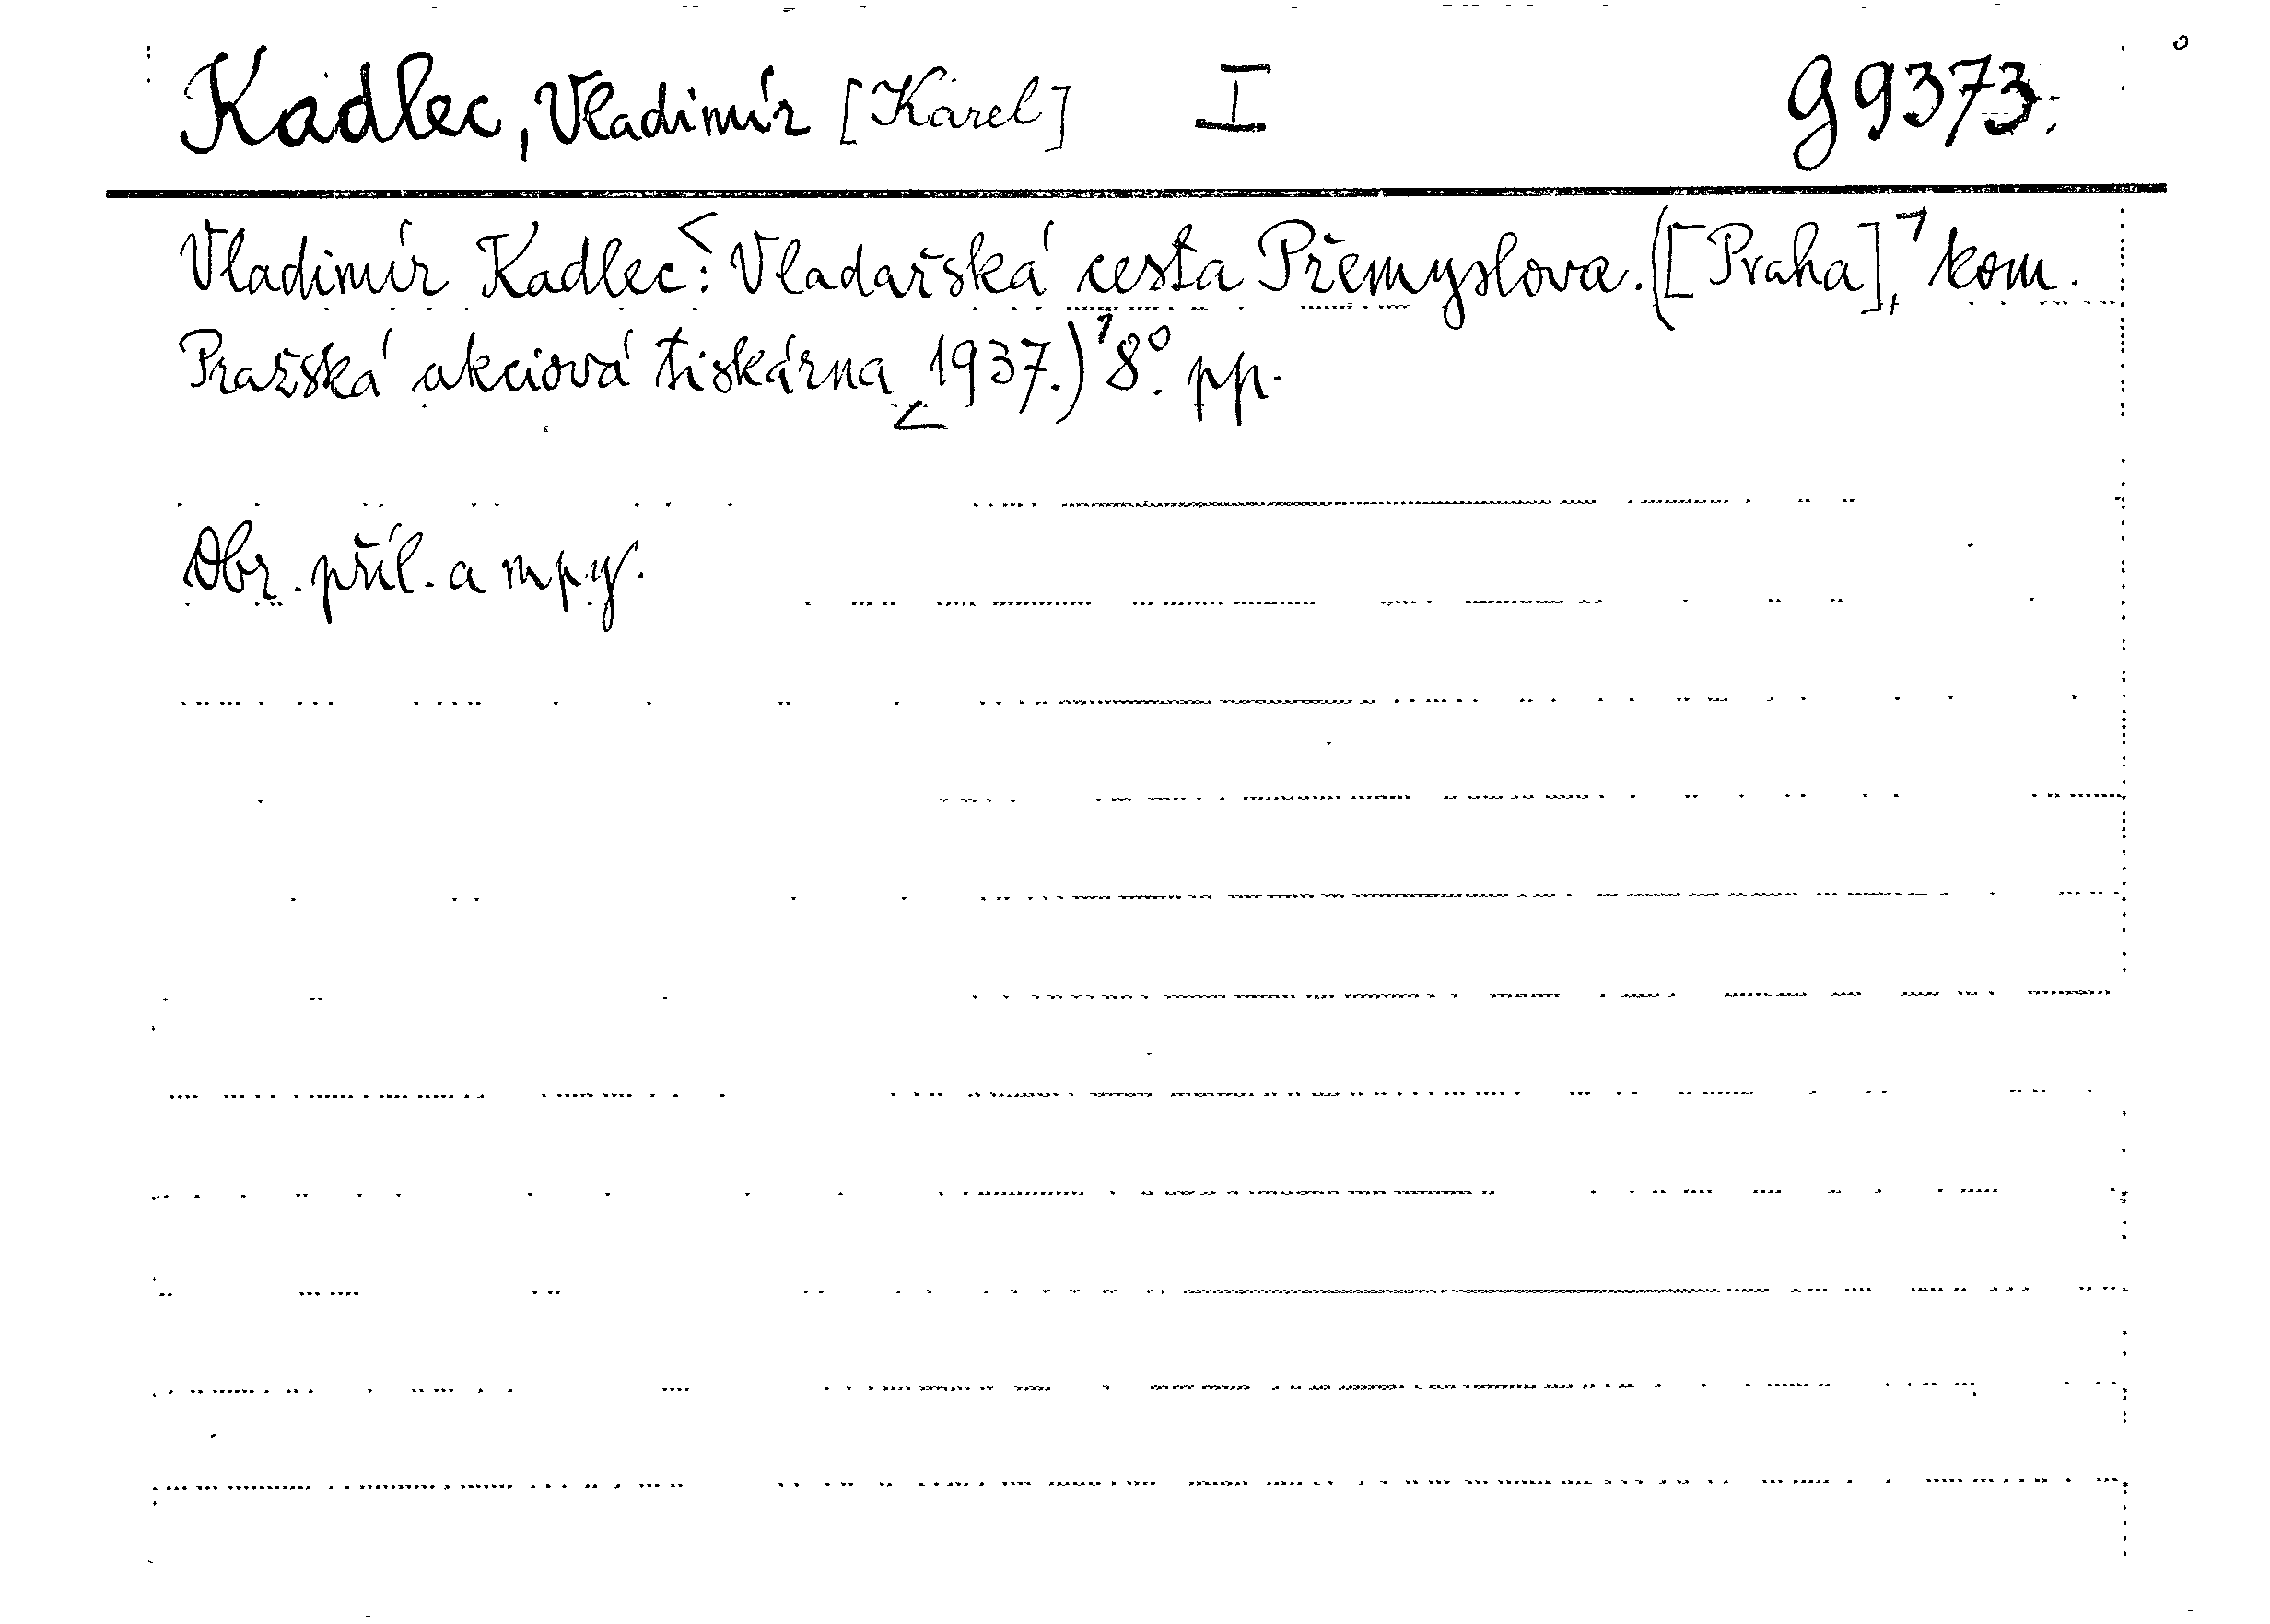 Kadlec, Vladimír [Karel] I g 9373.
Vladimír Kadlec: Vladařská cesta Přemyslova. ([Praha], kom.
Pražská akciová tiskárna 1937.) 8°. pp.
Obr. příl. a mpy.